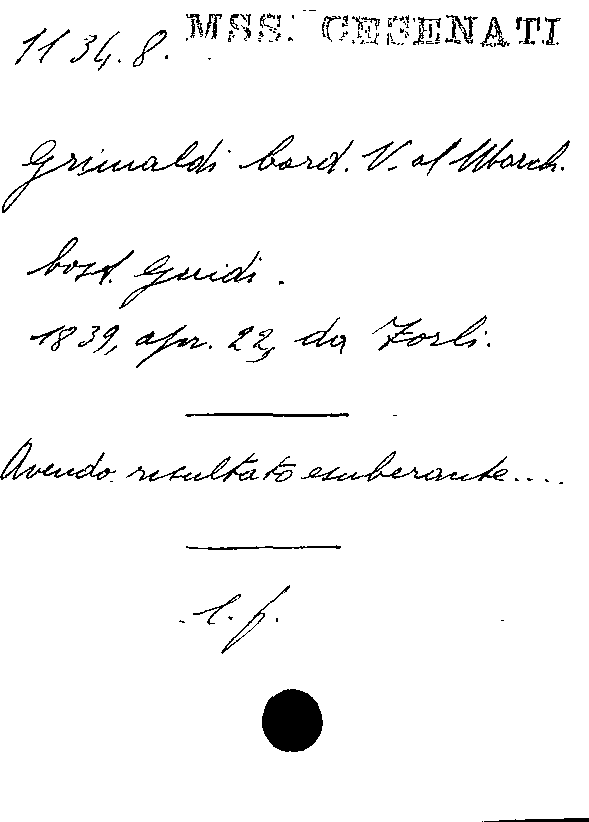 MSS. CESENATI
1134.8.
Grimaldi Card. V. al March.
Cost. Guidi.
1839, apr. 22, da Forlì.
Avendo resultato esuberante....
l. f.